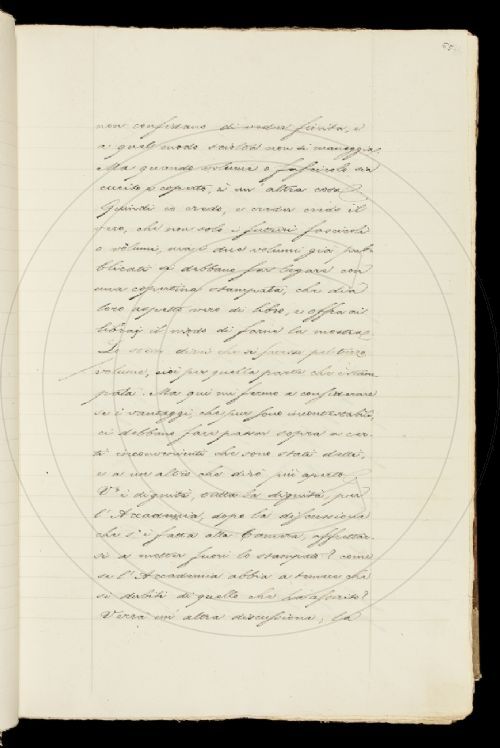 non confidano di veder finita, e
a quel modo sciolta non si maneggia.
Ma quando volume o fascicolo sia
cucito e coperto, è un' altra cosa.
Quindi io credo, e creder credo il
vero, che non solo i futuri fascicoli
o volumi, ma i due volumi già pub
blicati si debbano far legare con
una copertina stampata, che dia
loro aspetto vero di libro, e offra ai
librai il modo di farne la mostra.
Lo stesso direi che si facesse pel terzo
volume, cioè per quella parte che è stam
pata. Ma qui mi fermo a considerare
se i vantaggi, che pur sono incontestabili,
ci debbano far passar sopra a cer
ti inconvenienti che sono stati detti,
e a un altro che dirò più aperto.
V' è dignità, tutta la dignità, per
l' Accademia, dopo la discussione
che s' è fatta alla Camera, affrettar
si a metter fuori lo stampato? come
se l' Accademia abbia a temere che
si dubiti di quello che ha asserito?
Verrà un' altra discussione, la